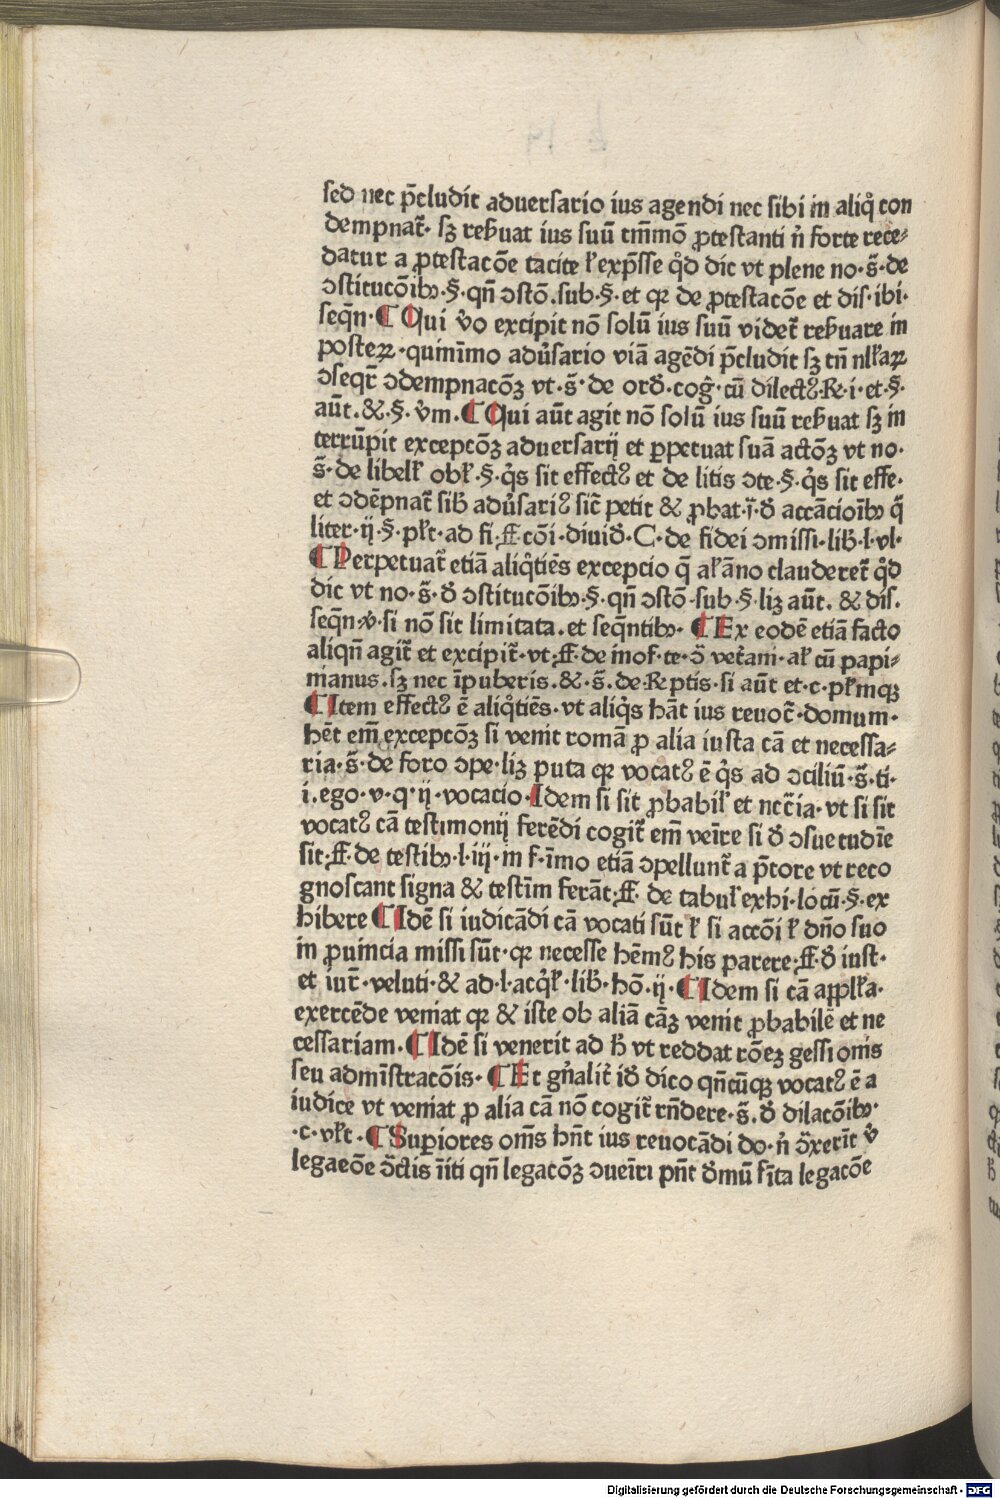 sed nec p̄cludit aduersario ius agendi nec sibi in aliq̊ con
dempnat᷑· sꝫ reẜuat ius suū tm̄mō ꝓtestanti n̄ forte rece⸗
datur a ꝓtestacōe tacite ł exp̄sse qd̊ dic vt plene no·s̄·de
ↄstitucōibꝫ·§·qn̄ ↄstō·sub·§·et qꝛ de ꝓtestacōe et dis·ibi·
seqn̄·¶ Qui v̊o excipit nō solū ius suū videt᷑ reẜuare in
posteꝝ·quinīmo adu̓sario viā agēdi p̄cludit sꝫ tn̄ nlłaꝝ
ↄseqr̄ ↄdempnacōꝫ vt·s̄·de ord̓·cog̓·cū dilectꝰ·℞·i·et·§·
aūt·&·§·v̊m·¶ Qui aūt agit nō solū ius suū reẜuat sꝫ in
terrūpit excepcōꝫ aduersarij et ꝑpetuat suā actōꝫ vt no·
s̄·de libelł obł·§·q̊s sit effectꝰ et de litis ↄte·§·q̊s sit effe·
et ↄdēpnat᷑ sib̓ adu̓sariꝰ sic̄ petit & ꝓbat·ī·d̓ accācioībꝫ q̄
liter·ij·§·płt·ad fi·ff·cōi·diuid̓·C·de fidei ↄmissi·lib̓·l·vl·
¶ Perpetuat᷑ etiā aliq̊tiēs excepcio q̄ ał āno clauderet᷑ qd̊
dic vt no·s̄·d̓ ↄstitucōibꝫ·§·qn̄ ↄstō·sub·§·liꝫ aūt·& dis·
seqn̄·v̓·si nō sit limitata·et seqn̄tibꝫ· ¶ Ex eodē etiā facto
aliqn̄ agit᷑ et excipit᷑·vt·ff·de inof·te·ↄ̄ vet̓am·ał cū papi⸗
manus·sꝫ nec īpuberis·&·s̄·de·℞ptis·si aūt et·c·płmqꝫ
¶ Item effectꝰ ē aliq̊tiēs·vt aliq̊s hāt ius reuoc᷑·domum·
hēt em̄ excepcōꝫ si venit romā ꝓ alia iusta cā et necessa⸗
ria·s̄·de foro ↄpe·liꝫ puta qꝛ vocatꝰ ē q̊s ad ↄciliū·s̄·ti·
i·ego·v·q·ij·vocacio·Idem si sit ꝓbabił et ncc̄ia·vt si sit
vocatꝰ cā testimonij ferēdi cogit᷑ em̄ veīre si d̓ ↄsuetudīe
sit·ff·de testibꝫ·l·iij·in f·īmo etiā ↄpellunt᷑ a p̄tore vt reco
gnoscant signa & testīm ferāt·ff· de tabuł exhi·locū·§·ex
hibere ¶ Idē si iudicādi cā vocati sūt ł si accōi ł dn̄o suo
in ꝓuincia missi sūt·qꝛ necesse hēmꝰ his parere·ff·d̓ iust·
et iur̄·veluti·& ad·l·acq̊ł·lib̓·hō·ij·¶ Idem si cā applła·
exercēde veniat qꝛ & iste ob aliā cāꝫ venit ꝓbabilē et ne
cessariam·¶ Idē si venerit ad h̓ vt reddat rōeꝫ gessiom̄s
seu admīstracōis·¶ Et gn̄alit᷑ id̓ dico qn̄cūqꝫ vocatꝰ ē a
iudice vt veniat ꝓ alia cā nō cogit᷑ rn̄dere·s̄·d̓ dilacōibꝫ·
·c·vłt·¶ Supiores om̄s hn̄t ius reuocādi do·n̄ ↄ̄xerīt v̊
legaeōe ↄ̄ctis īiti qn̄ legacōꝫ ↄueīrı pn̄t d̓mū fīta legacōe
Digitalisierung gefördert durch die Deutsche Forschungsgemeinschaft - DFG